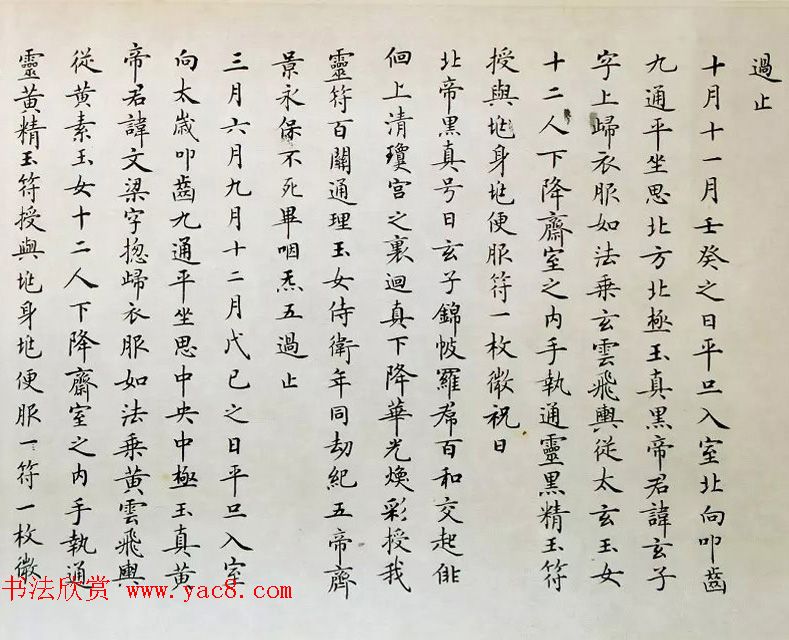 過止
十月十一月壬癸之日平旦入室北向叩齒
九通平坐思北方北極玉真黑帝君諱玄子
字上歸衣服如法乘玄雲飛輿從太玄玉女
十二人下降齋室之内手執通靈黑精玉符
授與兆身兆便服符一枚微祝曰
北帝黑真号曰玄子錦帔羅帬百和交起俳
佪上清瓊宮之裏迴真下降華光煥彩授我
靈符百關通理玉女侍衛年同劫紀五帝齊
景永保不死畢咽炁五過止
三月六月九月十二月戊己之日平旦入室
向太歲叩齒九通平坐思中央中極玉真黄
帝君諱文梁字揔歸衣服如法乘黄雲飛輿
從黄素玉女十二人下降齋室之内手執通
靈黄精玉符授與兆身兆便服一符一枚微
书法欣赏 www.yac8.com